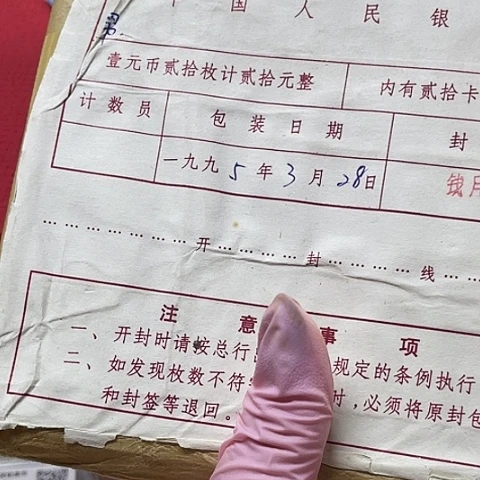 中国人民银
男
壹元币贰拾枚计贰拾元整 内有贰拾卡
计数员 包装日期 封
一九九5年3月28日
……………………开………封…………线……
注意事项
一、开封时请按总行 规定的条例执行
二、如发现枚数不符 时,必须将原封包
和封签等退回。